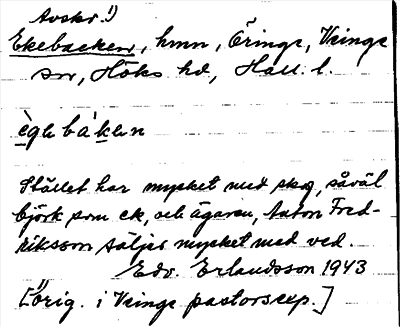 Avskr. 1)
Ekebacken, hmn, Öringe, Veinge
sn, Höks hd, Hall. l.
Stället har mycket med skog, såväl
björk som ek, och ägaren, Anton Fred-
riksson säljer mycket med ved.
Edv. Erlandsson 1943
[1) orig. i Veinge pastorsexp.]